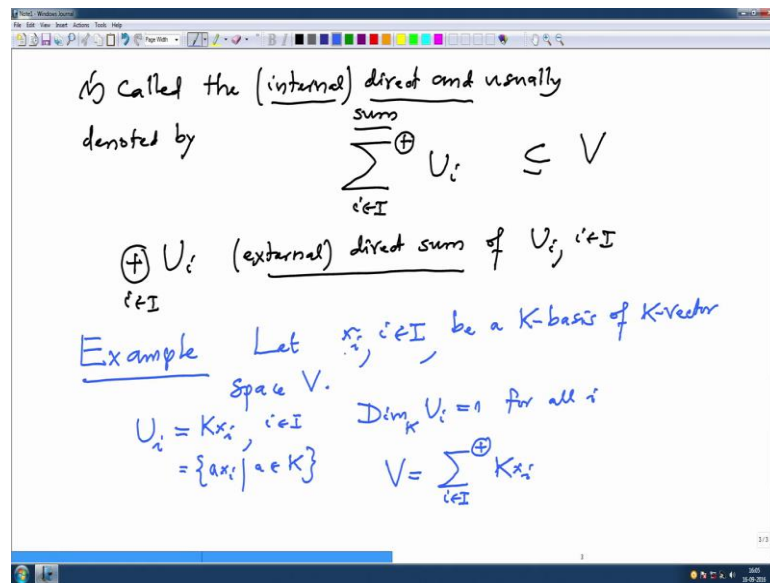 Note1 - Windows Journal
File Edit View Insert Actions Tools Help
Page Width
is called the (internal) direct and usually
sum
denoted by ∑⊕ Uᵢ ⊆ V
i∈I
⊕ Uᵢ (external) direct sum of Uᵢ, i∈I
i∈I
Example Let xᵢ, i∈I, be a K-basis of K-vector
space V.
Uᵢ = Kxᵢ, i∈I Dim_K Uᵢ = 1 for all i
= {axᵢ | a∈K} V = ∑⊕ Kxᵢ
i∈I
3/3
3
16:05
16-09-2016